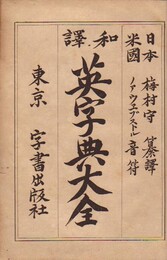 日本 梅村守 纂譯
米國 ノアウエブストル 音符
和譯
英字典大全
東京 字書出版社